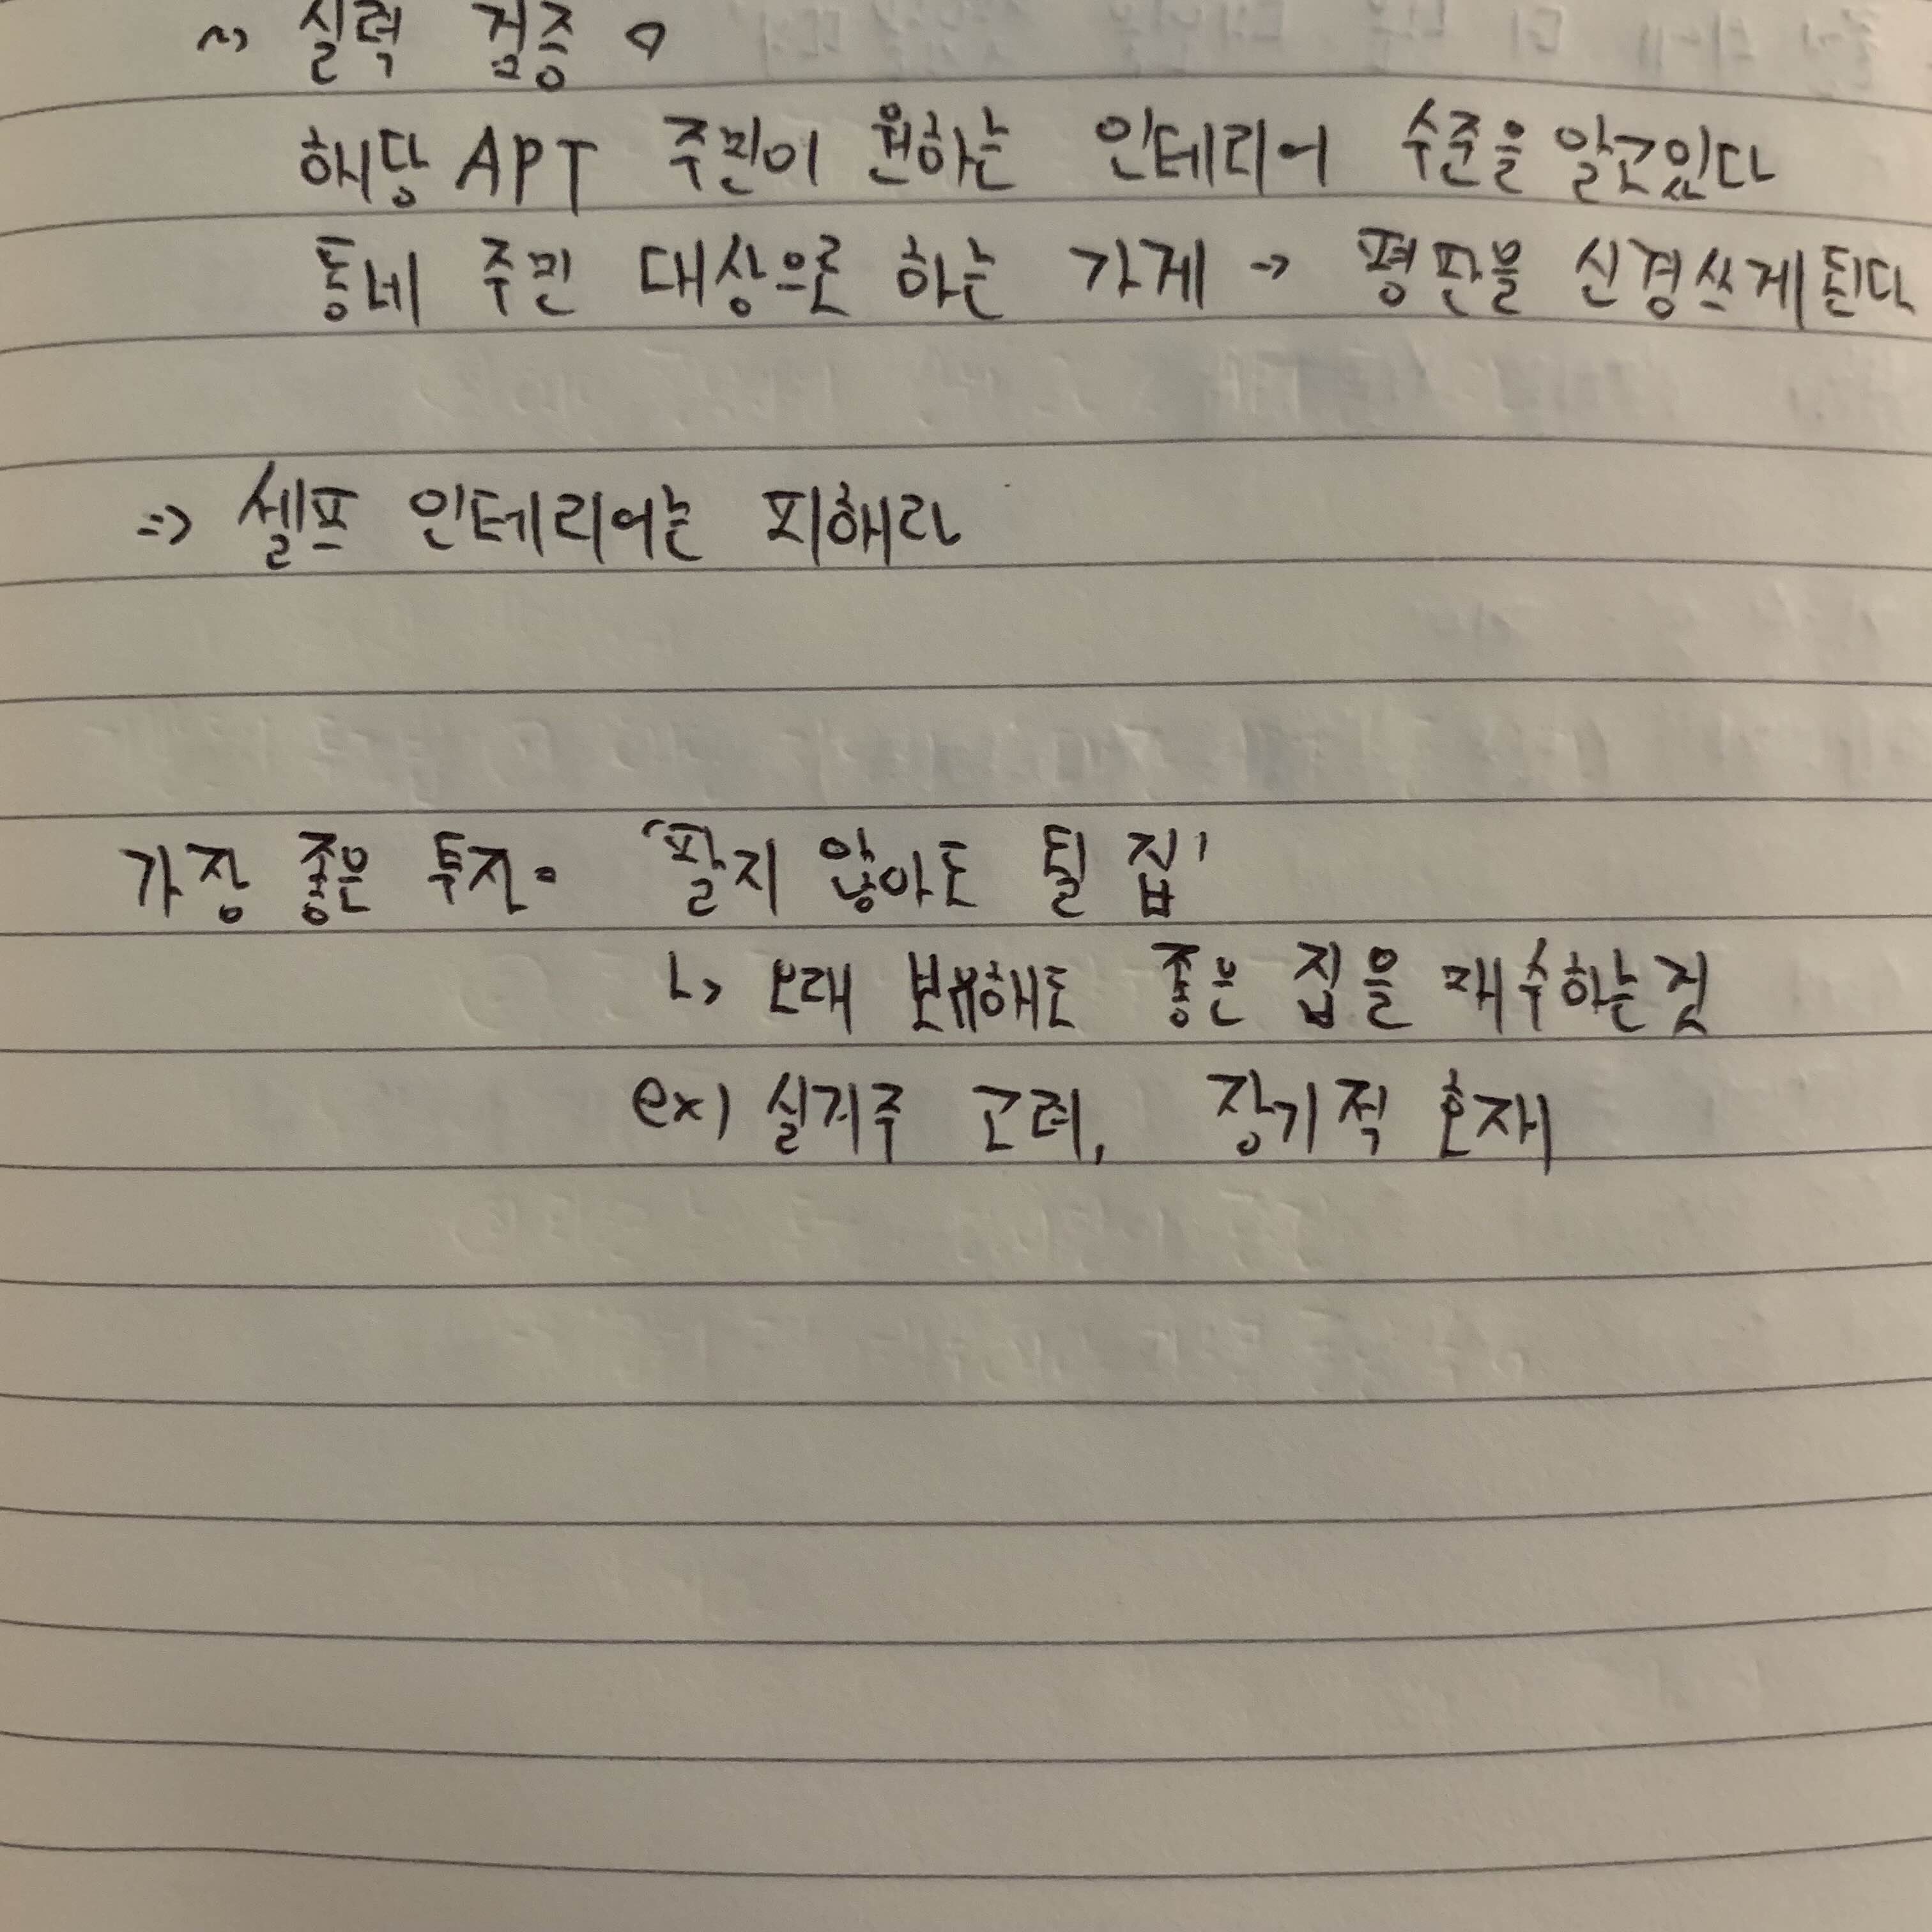 ~> 실력 검증 o
해당 APT 주민이 원하는 인테리어 수준을 알고있다
동네 주민 대상으로 하는 가게 -> 평판을 신경쓰게된다
=> 셀프 인테리어는 피해라
가장 좋은 투자. '팔지 않아도 될 집'
↳ 오래 보유해도 좋은 집을 매수하는것
ex) 실거주 고려, 장기적 호재